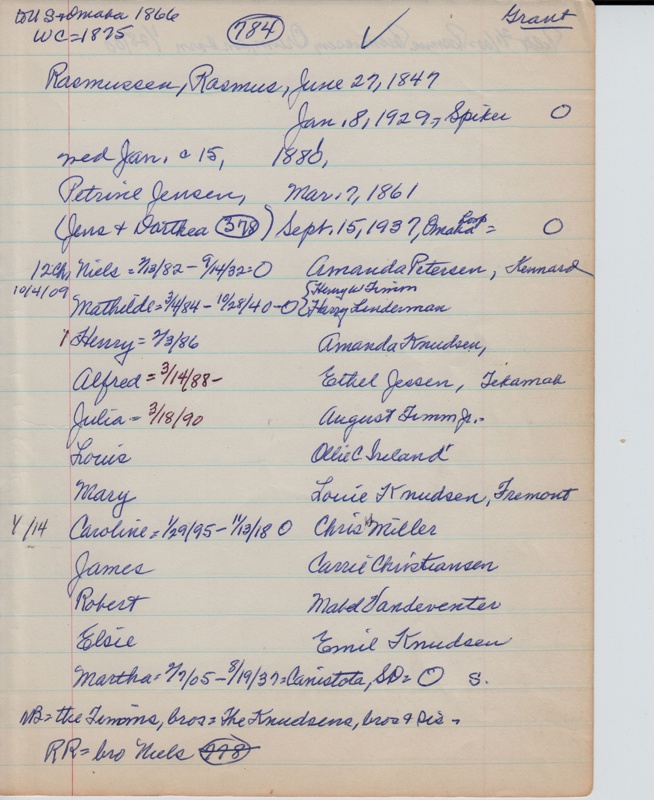 to US + Omaha 1866
WC = 1875
784
✓
Grant
Rasmussen, Rasmus, June 27, 1847
Jan. 8, 1929, Spiker O
wed Jan. c 15, 1880,
Petrine Jensen, Mar. 7, 1861
(Jens & Dorthea 378) Sept. 15, 1937, Omaha hosp = O
12 ch, Niels = 2/13/82 - 9/14/32 = O Amanda Petersen, Kennard
10/4/09 Mathilde = 3/4/84 - 10/28/40 - O { Henry W Timm
Harry Linderman
1 Henry = 2/3/86 Amanda Knudsen,
Alfred = 3/14/88 - Ethel Jessen, Tekamah
Julia = 3/18/90 August Timm Jr. -
Louis Ollie C. Ireland
Mary Louie Knudsen, Fremont
4/14 Caroline = 1/29/95 - 11/13/18 O Chris Miller
James Carrie Christiansen
Robert Mabel Vandeventer
Elsie Emil Knudsen
Martha = 2/7/05 - 8/19/37 = Canistota, SD = O S.
NB = the Timms, bros = the Knudsens, bros & sis -
RR = bro Niels 778